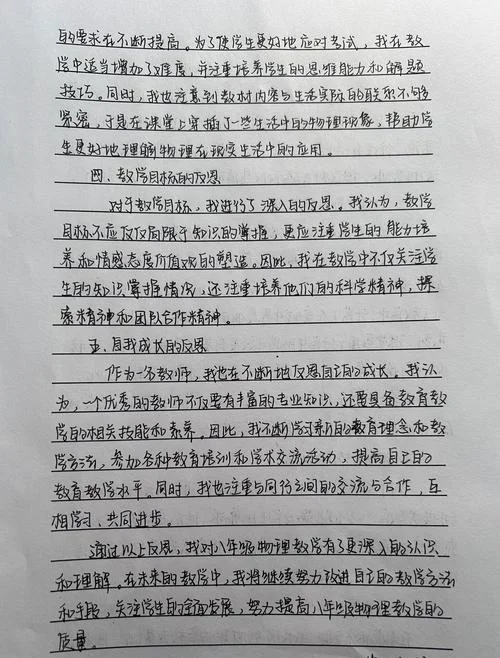 的要求在不断提高。为了使学生更好地应对考试，我在教
学中适当增加了难度，并注重培养学生的思维能力和解题
技巧。同时，我也注意到教材内容与生活实际的联系不够
紧密，于是在课堂上穿插了一些生活中的物理现象，帮助学
生更好地理解物理在现实生活中的应用。
四、教学目标的反思
对于教学目标，我进行了深入的反思。我认为，教学
目标不应仅仅局限于知识的掌握，更应注重学生的能力培
养和情感态度价值观的塑造。因此，我在教学中不仅关注学
生的知识掌握情况，还注重培养他们的科学精神，探
索精神和团队合作精神。
五、自我成长的反思
作为一名教师，我也在不断地反思自己的成长。我认
为，一个优秀的教师不仅要有丰富的专业知识，还要具备教育教
学的相关技能和素养。因此，我不断学习新的教育理念和教
学方法，参加各种教育培训和学术交流活动，提高自己的
教育教学水平。同时，我也注重与同行之间的交流与合作，互
相学习、共同进步。
通过以上反思，我对八年级物理教学有了更深入的认识
和理解。在未来的教学中，我将继续努力改进自己的教学方法
和手段，关注学生的全面发展，努力提高八年级物理教学的
质量。